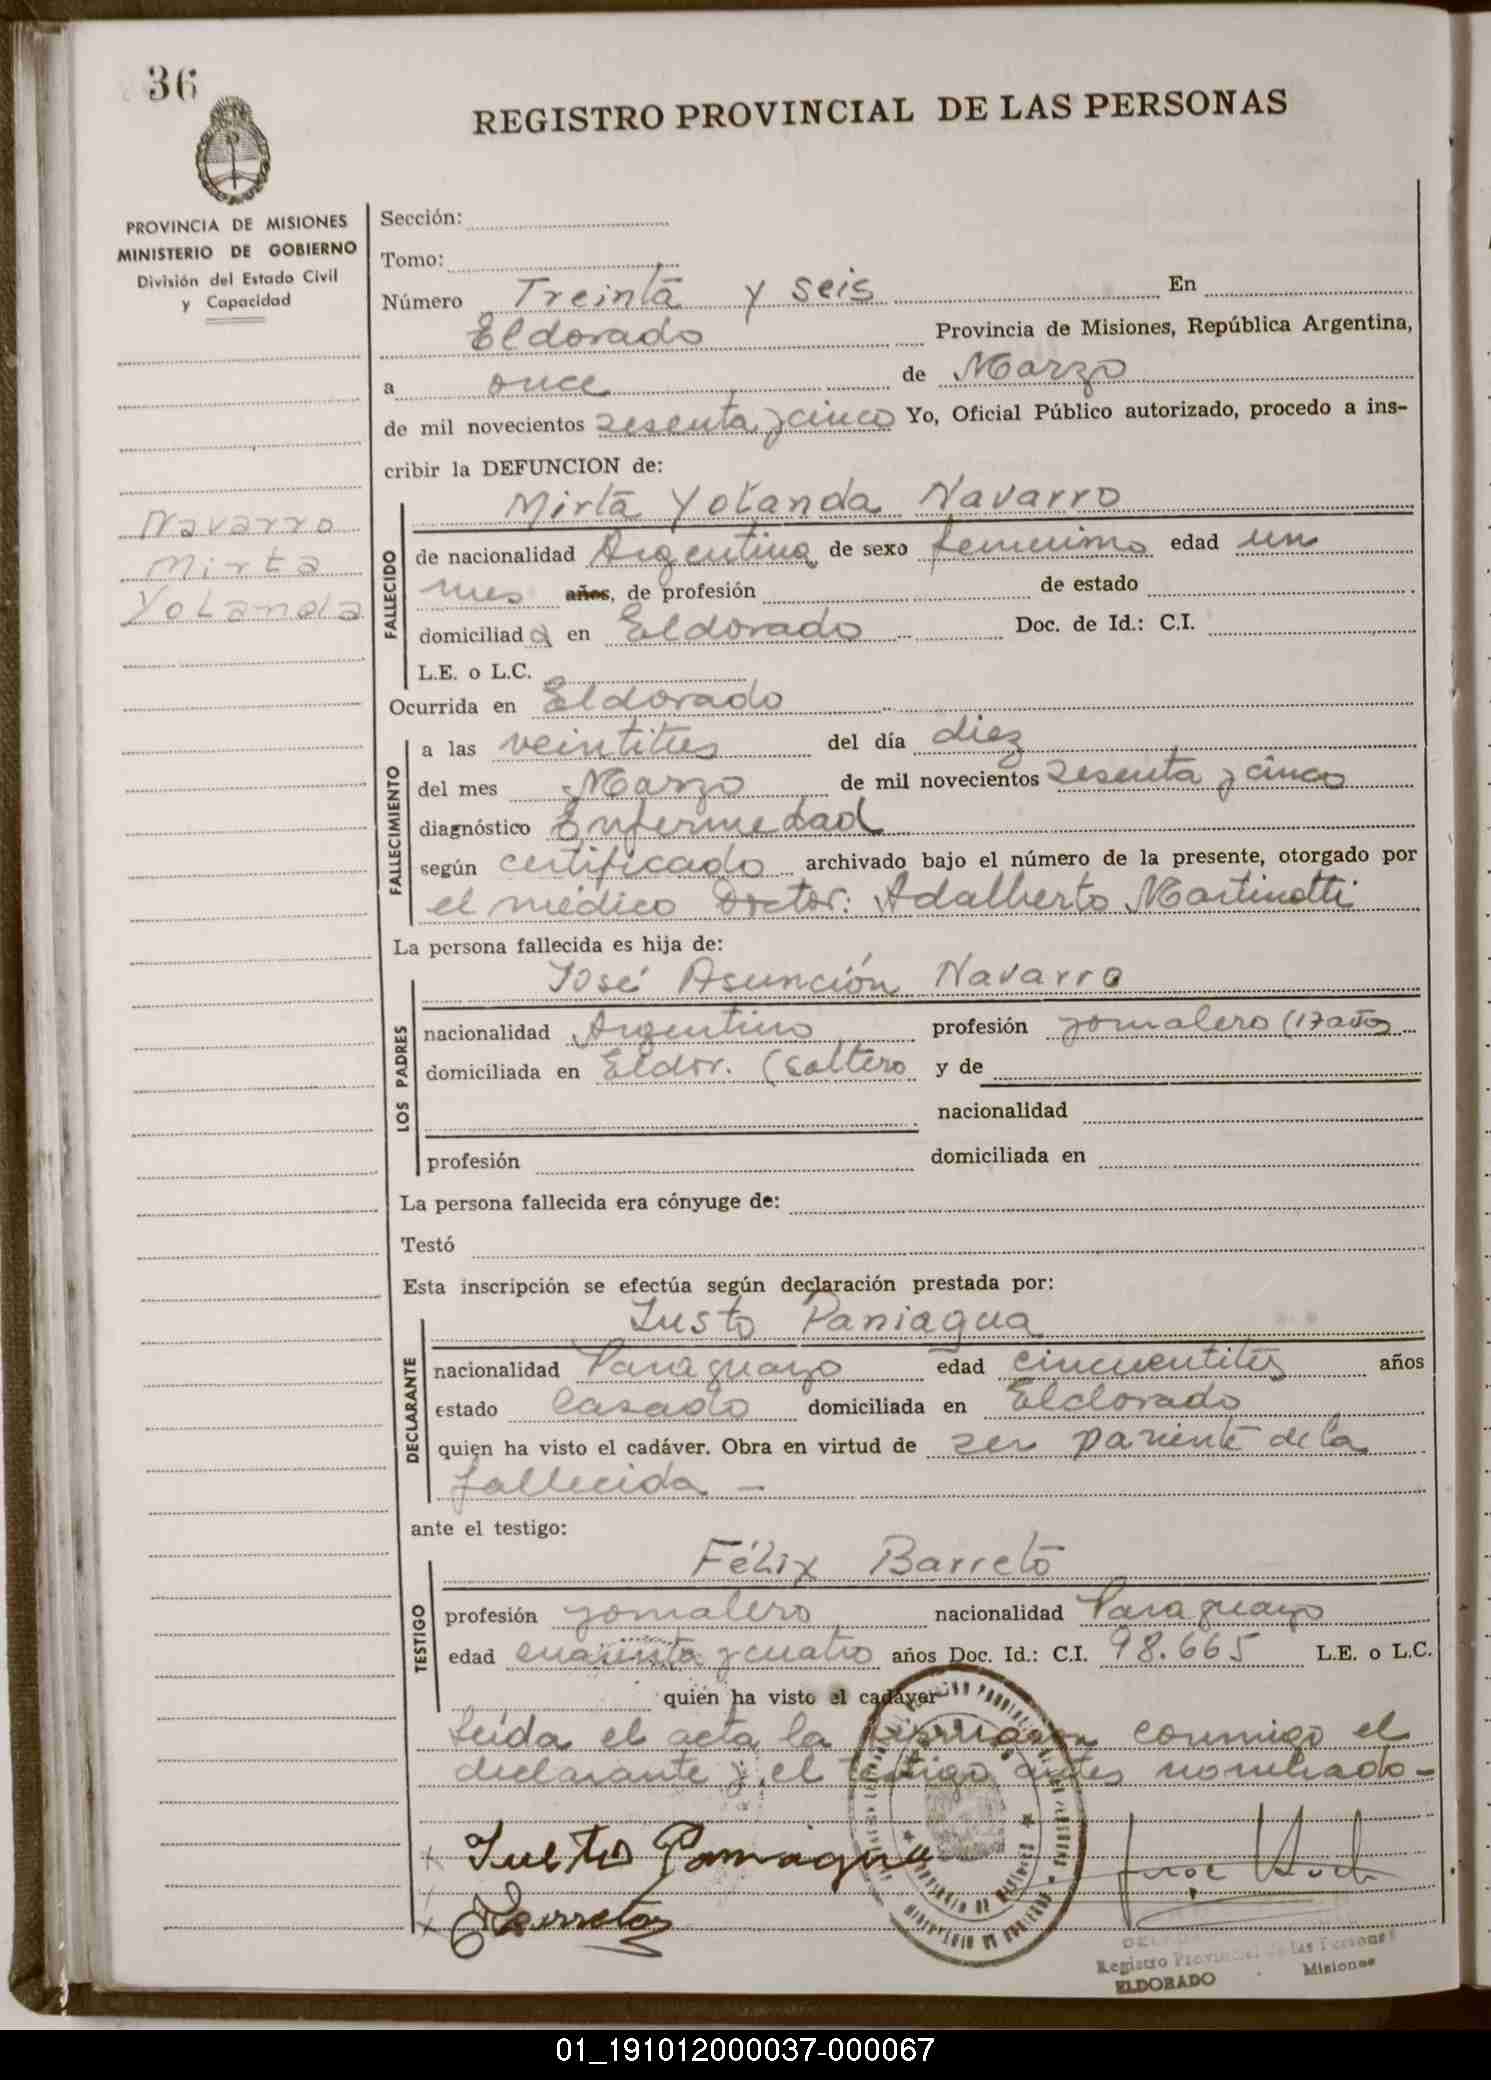 36
REGISTRO PROVINCIAL DE LAS PERSONAS
PROVINCIA DE MISIONES
MINISTERIO DE GOBIERNO
División del Estado Civil
y Capacidad
Navarro
Mirta
Yolanda
Sección:
Tomo:
Número Treinta y seis En
Eldorado Provincia de Misiones, República Argentina,
a once de Marzo
de mil novecientos sesenta y cinco Yo, Oficial Público autorizado, procedo a ins-
cribir la DEFUNCION de:
FALLECIDO
Mirta Yolanda Navarro
de nacionalidad Argentina de sexo femenino edad un
mes años, de profesión de estado
domiciliada en Eldorado Doc. de Id.: C.I.
L.E. o L.C.
Ocurrida en Eldorado
FALLECIMIENTO
a las veintitres del día diez
del mes Marzo de mil novecientos sesenta y cinco
diagnóstico Enfermedad
según certificado archivado bajo el número de la presente, otorgado por
el médico Doctor: Adalberto Martinotti
La persona fallecida es hija de:
LOS PADRES
José Asunción Navarro
nacionalidad Argentino profesión jornalero (17 años
domiciliada en Eldor. (soltero y de
nacionalidad
profesión domiciliada en
La persona fallecida era cónyuge de:
Testó
Esta inscripción se efectúa según declaración prestada por:
DECLARANTE
Justo Paniagua
nacionalidad Paraguayo edad cincuentitres años
estado casado domiciliada en Eldorado
quien ha visto el cadáver. Obra en virtud de ser pariente de la
fallecida -
ante el testigo:
TESTIGO
Félix Barreto
profesión jornalero nacionalidad Paraguayo
edad cuarenta y cuatro años Doc. Id.: C.I. 98.665 L.E. o L.C.
quien ha visto el cadáver
Leída el acta la firmaron conmigo el
declarante y el testigo antes nombrado -
x Justo Paniagua
x Barreto
Registro Provincial de las Personas
ELDORADO Misiones
01_191012000037-000067